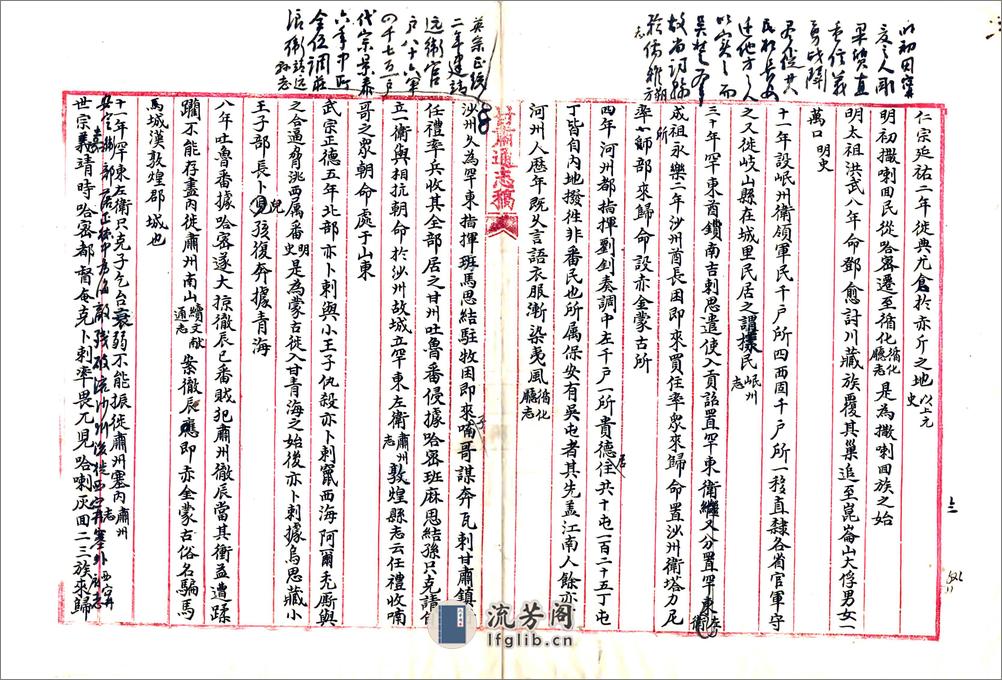 仁宗延祐二年徙典尤倉於亦斤之地以上元史
明初撒喇回民從哈密遷至循化循化廳志是為撒喇回族之始
明太祖洪武八年命鄧愈討川藏族覆其巢追至崑崙山大俘男女一
萬口明史
十一年設岷州衛領軍民千戶所四西固千戶所一移直隸各省官軍守
之又徙岐山縣在城里民居之謂據民岷州志
三十年罕東酋鎖南吉剌思遣使入貢詔置罕東衛繼又分置罕東左衛
成祖永樂二年沙州酋長困即來買住率眾來歸命置沙州衛塔力尼
率所部來歸命設赤金蒙古所
四年河州都指揮劉釗奏調中左千戶一所貴德居住共十屯一百二十五丁屯
丁皆自內地撥徃非番民也所屬保安有吳屯者其先蓋江南人餘亦
河州人歷年既久言語衣服漸染夷風循化廳志
甘肅通志稿
沙州久為罕東指揮班馬思結駐牧困即來子喃哥謀奔瓦剌甘肅鎮
任禮率兵收其全部居之甘州吐魯番侵據哈密班麻思結孫只克請
立一衛與相抗朝命於沙州故城立罕東左衛肅州志敦煌縣志云任禮收喃
哥之眾朝命處于山東
武宗正德五年北部亦卜剌與小王子仇殺亦卜剌竄西海阿爾禿廝與
之合逼脅洮西屬番明史是為蒙古徙入甘青海之始後亦卜剌據烏思藏小
王子部長卜兒孩復奔據青海
八年吐魯番據哈密遂大掠徹辰巳番賊犯肅州徹辰當其衝益遭蹂
躪不能存盡內徙肅州南山續文獻通志案徹辰應即赤金蒙古俗名騸馬
馬城漢敦煌郡城也
十一年罕東左衛只克子乞台衰弱不能振徙肅州塞內肅州志
世宗嘉靖時哈密都督奄克卜剌率畏兀兒哈喇灰回二三族來歸
流芳阁
lfglib.cn